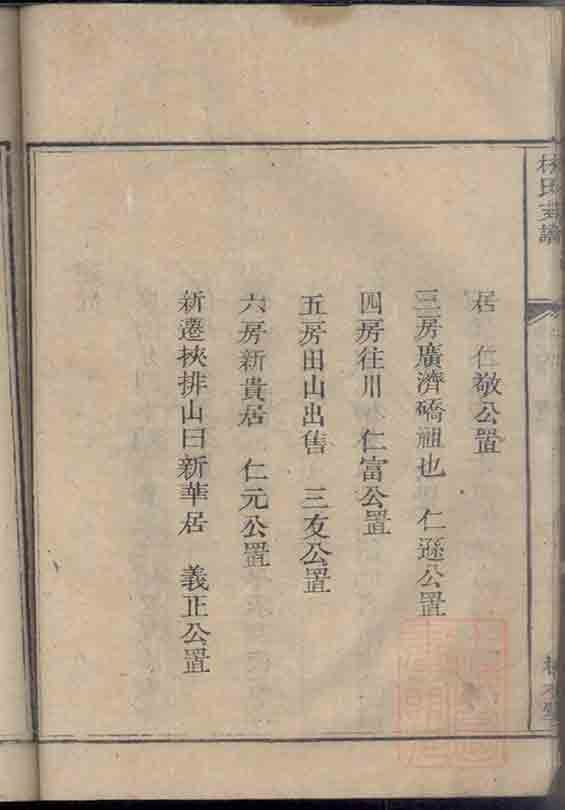 林氏支譜
居　仁敬公置
三房廣濟硚祖也　仁遜公置
四房往川　仁富公置
五房田山出售　三友公置
六房新貴居　仁元公置
新遷挾排山曰新華居　義正公置